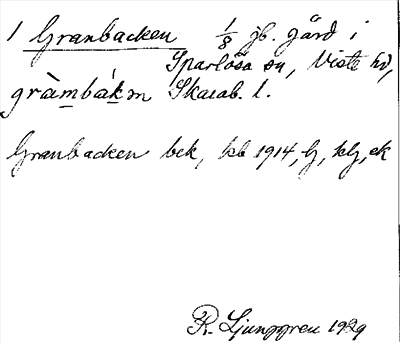 1 Granbacken 1/8 jb. gård i
Sparlösa sn, Viste hd,
gràmbák̠m̠ Skarab. l.
Granbacken bek, kb 1914, lj, klj, ek
R. Ljunggren 1929